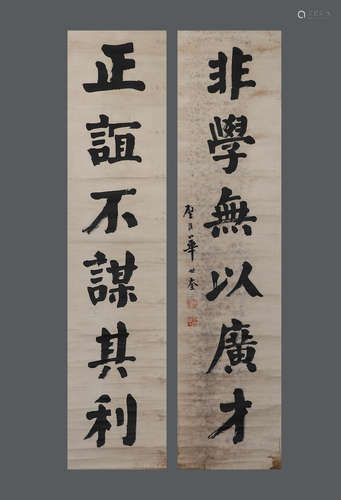 非學無以廣才
正誼不謀其利
華世奎